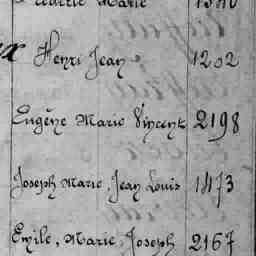 Marie 1340
Henri Jean 1202
Eugène Marie Vincent 2198
Joseph Marie, Jean Louis 1473
Emile, Marie, Joseph 2167